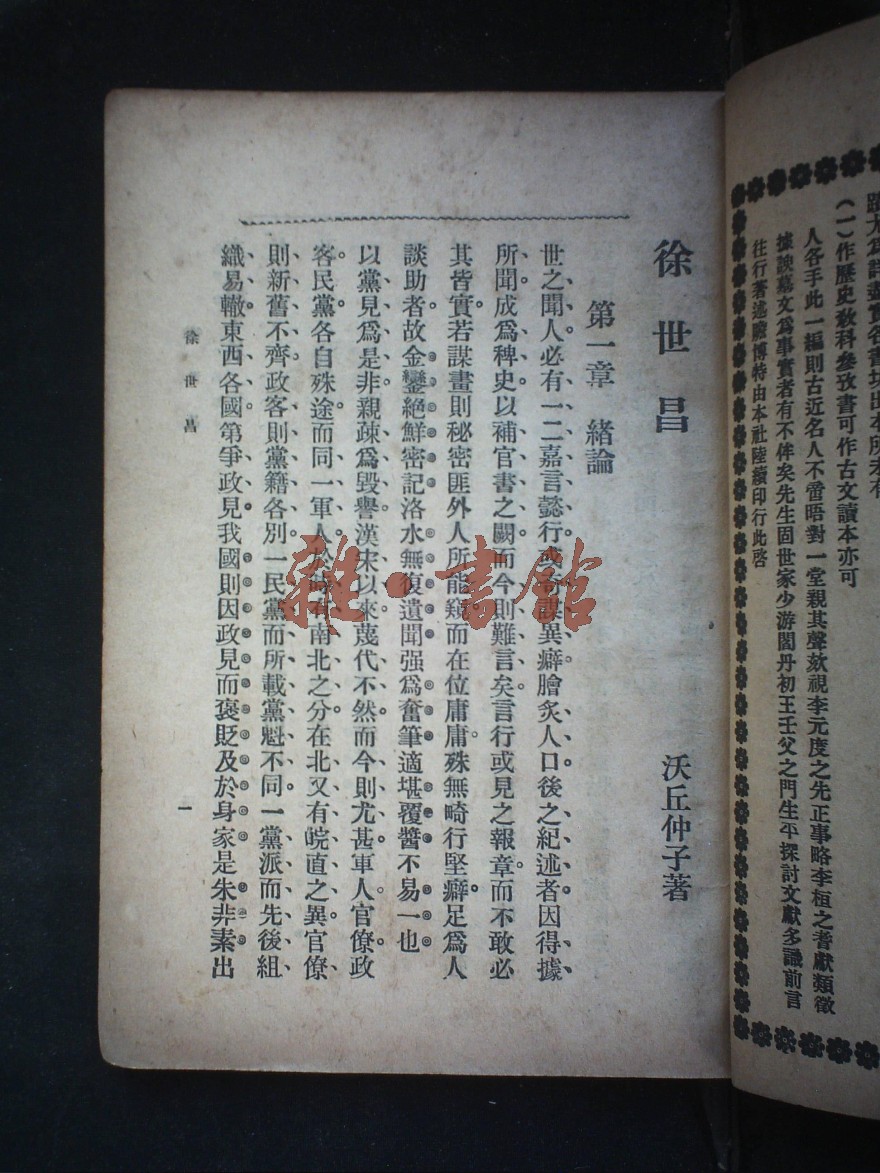 蹟尤爲詳盡實各書坊出本所未有
（一）作歷史敎科參攷書可作古文讀本亦可
人各手此一編則古近名人不啻晤對一堂親其聲欬視李元度之先正事略李桓之耆獻類徵
據諛墓文爲事實者有不侔矣先生固世家少游閻丹初王壬父之門生平探討文獻多識前言
往行著述贍博特由本社陸續印行此啓
徐世昌
沃丘仲子著
第一章 緒論
世之聞人必有一二嘉言懿行或奇謀異癖膾炙人口後之紀述者因得據
所聞成爲稗史以補官書之闕而今則難言矣言行或見之報章而不敢必
其皆實若謀畫則秘密匪外人所能窺而在位庸庸殊無畸行堅癖足爲人
談助者故金鑾絕鮮密記洛水無復遺聞强爲奮筆適堪覆醬不易一也
以黨見爲是非親疎爲毀譽漢宋以來蔑代不然而今則尤甚軍人官僚政
客民黨各自殊途而同一軍人於時有南北之分在北又有皖直之異官僚
則新舊不齊政客則黨籍各別一民黨而所載黨魁不同一黨派而先後組
織易轍東西各國第爭政見我國則因政見而褒貶及於身家是朱非素出
徐世昌
一
雜·書館